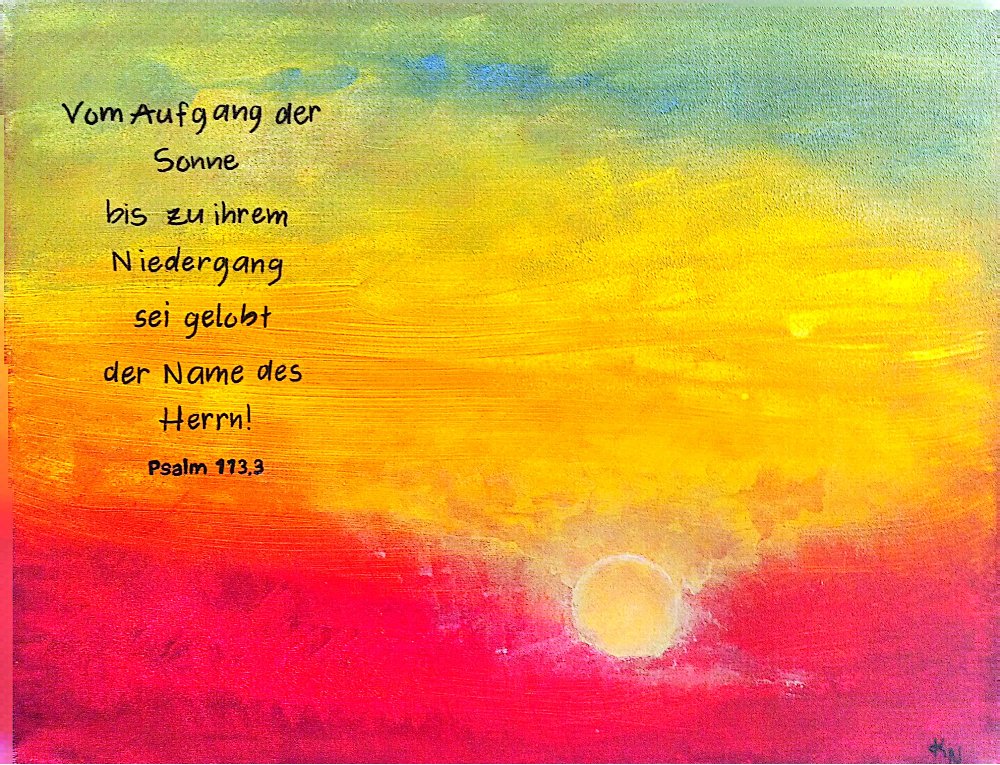 Vom Aufgang der
Sonne
bis zu ihrem
Niedergang
sei gelobt
der Name des
Herrn!
Psalm 113,3
KN